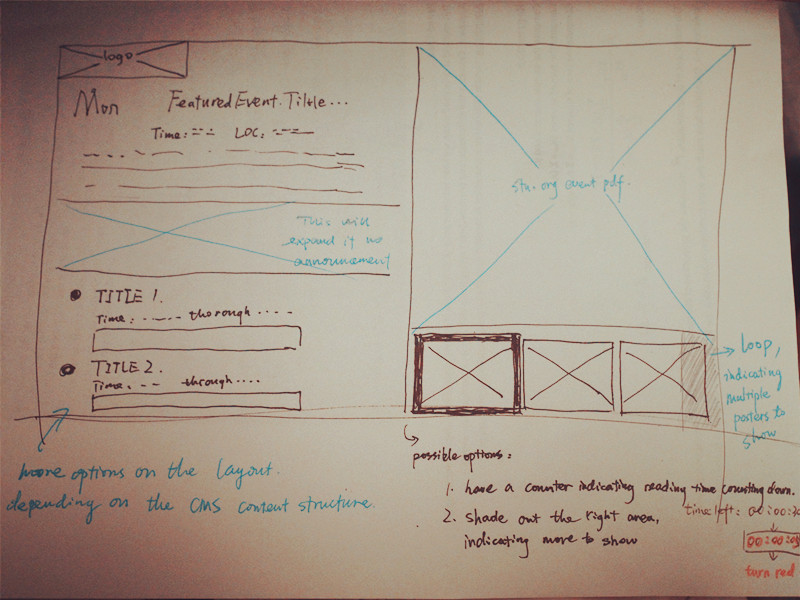 logo
Mon FeaturedEvent.Tiltle...
Time: LOC:
stu. org event pdf.
This will
expand if no
announcement
TITLE 1.
Time: ..... thorough ....
TITLE 2.
Time: through....
loop,
indicating
multiple
posters to
show
more options on the layout.
depending on the CMS content structure.
possible options:
1. have a counter indicating reading time counting down.
time left: 00:00:30
2. shade out the right area,
indicating more to show
turn red